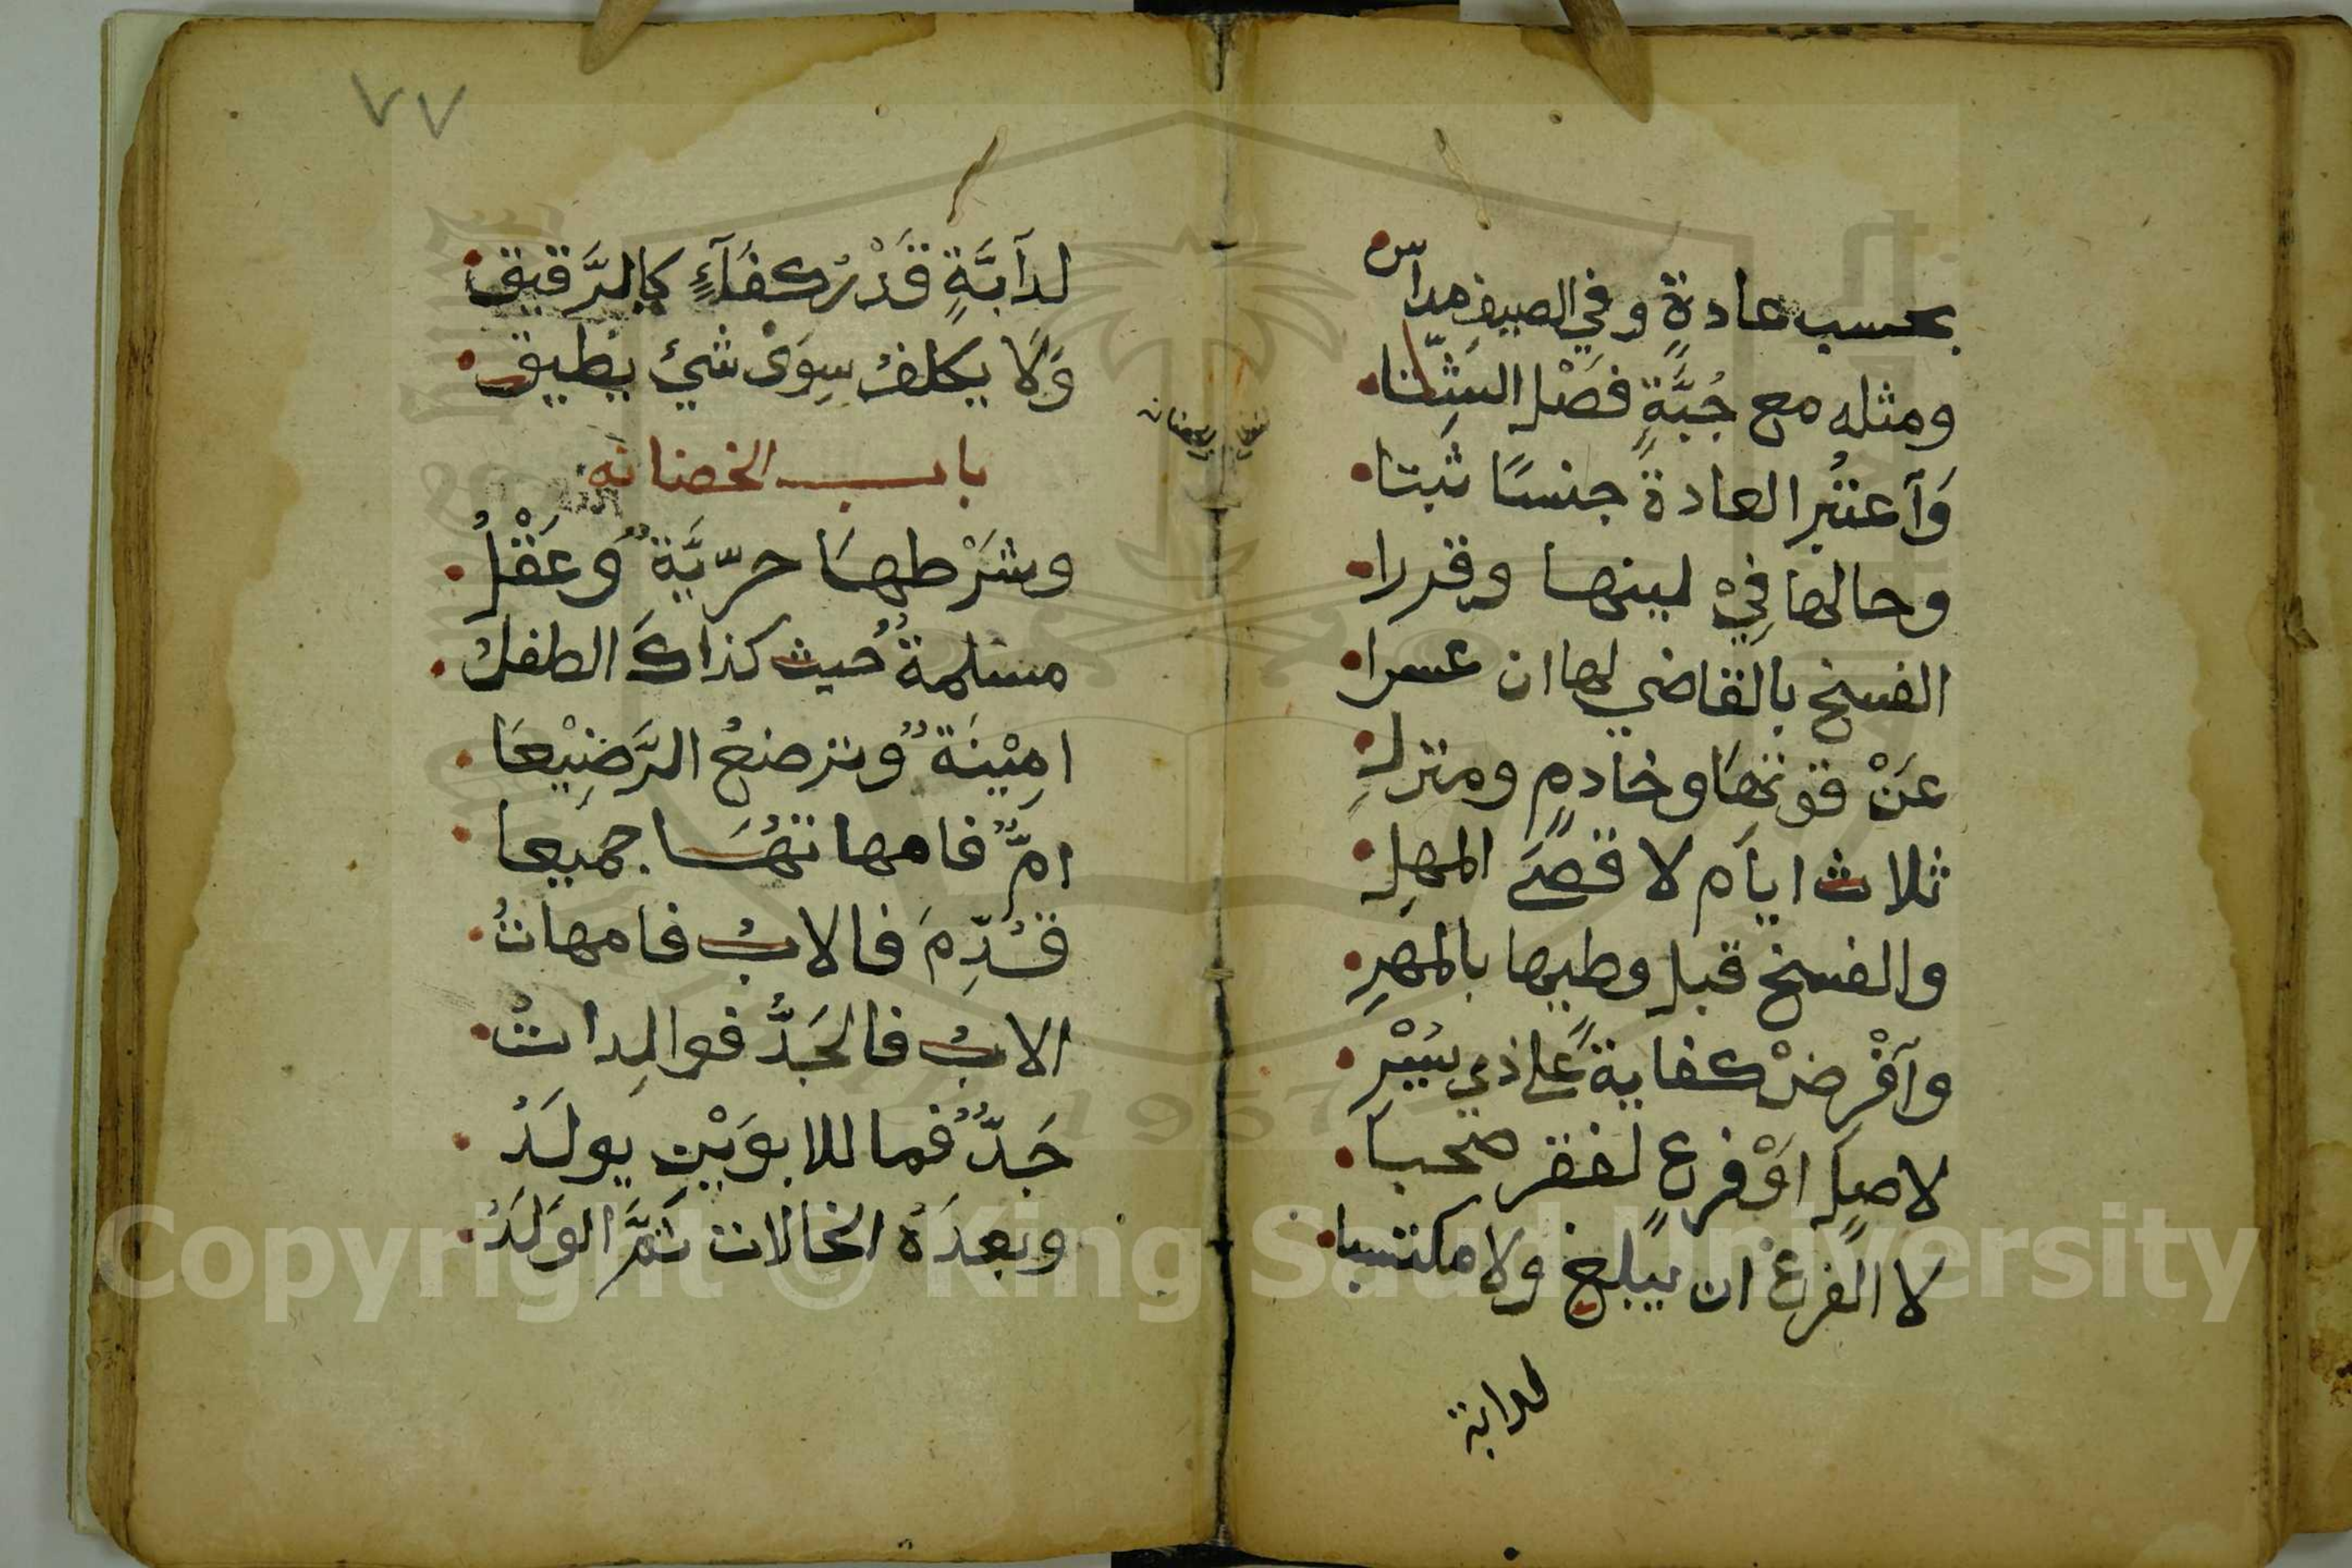 بحسب عادةٍ وفي الصيف مداس
ومثله مع جُبَّةٍ فَصْل الشِّتا
وَآعتبُر العادةً جنسًا ثبتا
وحالها فِيْ لينها وقدرا
الفسخ بالقاضي لها ان عسرا
عَنْ قوتهَا وخادمٍ ومنزلِ
ثلاث ايام لا قصَى المهلِ
والفسخ قبل وطيها بالمهرِ
وآفْرضْ كفايةً علي ذي يُسْرِ
لاصلٍ اوْ فرعٍ لفقر صحبا
لا الفرع ان يبلغ ولا مكتسبا
لدابة
٧٧
لدآبَّةٍ قَدْرُ كفَآءٍ كالرَّقيق
وَلَا يكلفُ سِوَىْ شيْ يطيق
باب الحضانه
وشَرْطهَا حرّيَّةٌ وَعَقْلُ
مسلمةٌ حُيث كذاكَ الطفلُ
امِيْنَةٌ وترضعُ الرَّضِيْعَا
امٌّ فامهاتُهَا جميعا
قُدِّمَ فالابُ فامهاتُ
الابُ فالجَدُّ فوالِداتُ
جَدٌّ فما للابوَيْنِ يولَدُ
وبعدَهُ الخالات ثُمَّ الوَلَدُ
Copyright © King Saud University
1957